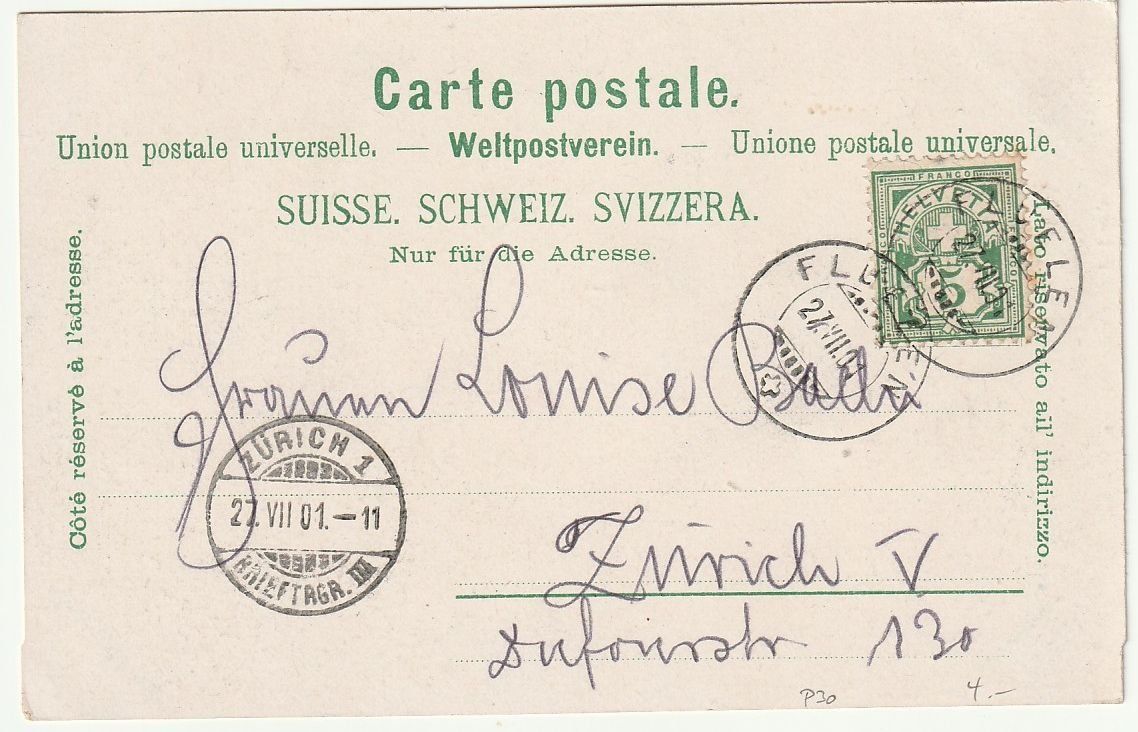 Carte postale.
Union postale universelle. — Weltpostverein. — Unione postale universale.
SUISSE. SCHWEIZ. SVIZZERA.
Nur für die Adresse.
Côté réservé à l'adresse.
Lato riservato all' indirizzo.
FRANCO
HELVETIA
5
FLUELEN
27.VII.01
FLUELEN
27.VII.01
Louise
ZÜRICH 1
27.VII 01.–11
BRIEFTRGR. III
Zürich V
Dufourstr 130
P30
4.–